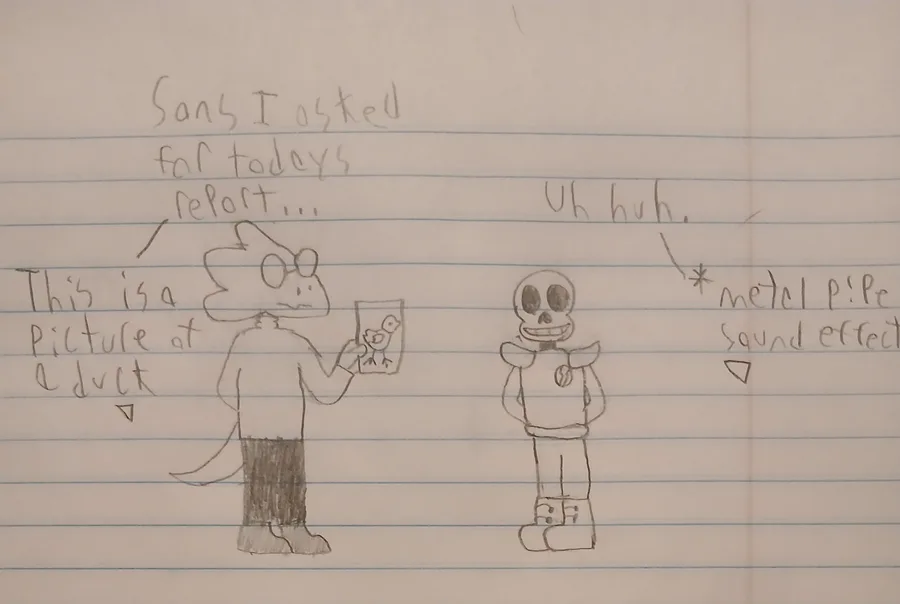 Sans I asked
for todays
report...
This is a
picture of
a duck
Uh huh.
*metal pipe
sound effect